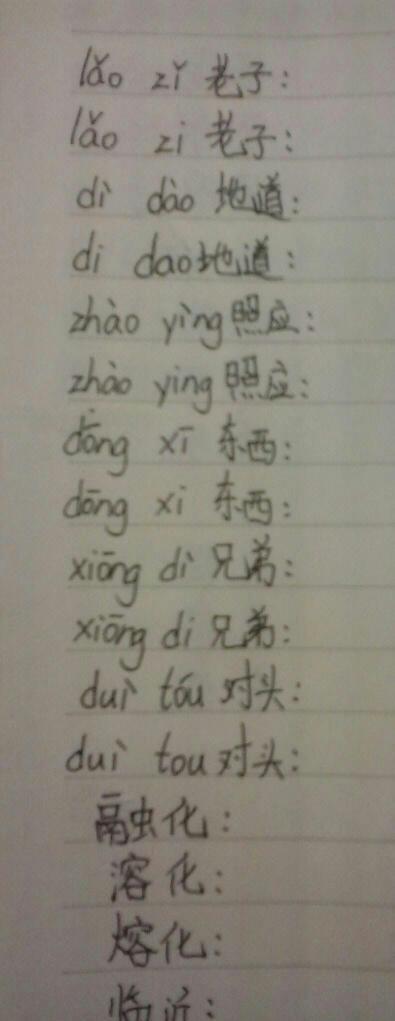 lǎo zǐ 老子：
lǎo zi 老子：
dì dào 地道：
di dao 地道：
zhào yìng 照应：
zhào ying 照应：
dōng xī 东西：
dōng xi 东西：
xiōng dì 兄弟：
xiōng di 兄弟：
duì tóu 对头：
duì tou 对头：
融化：
溶化：
熔化：
临近：